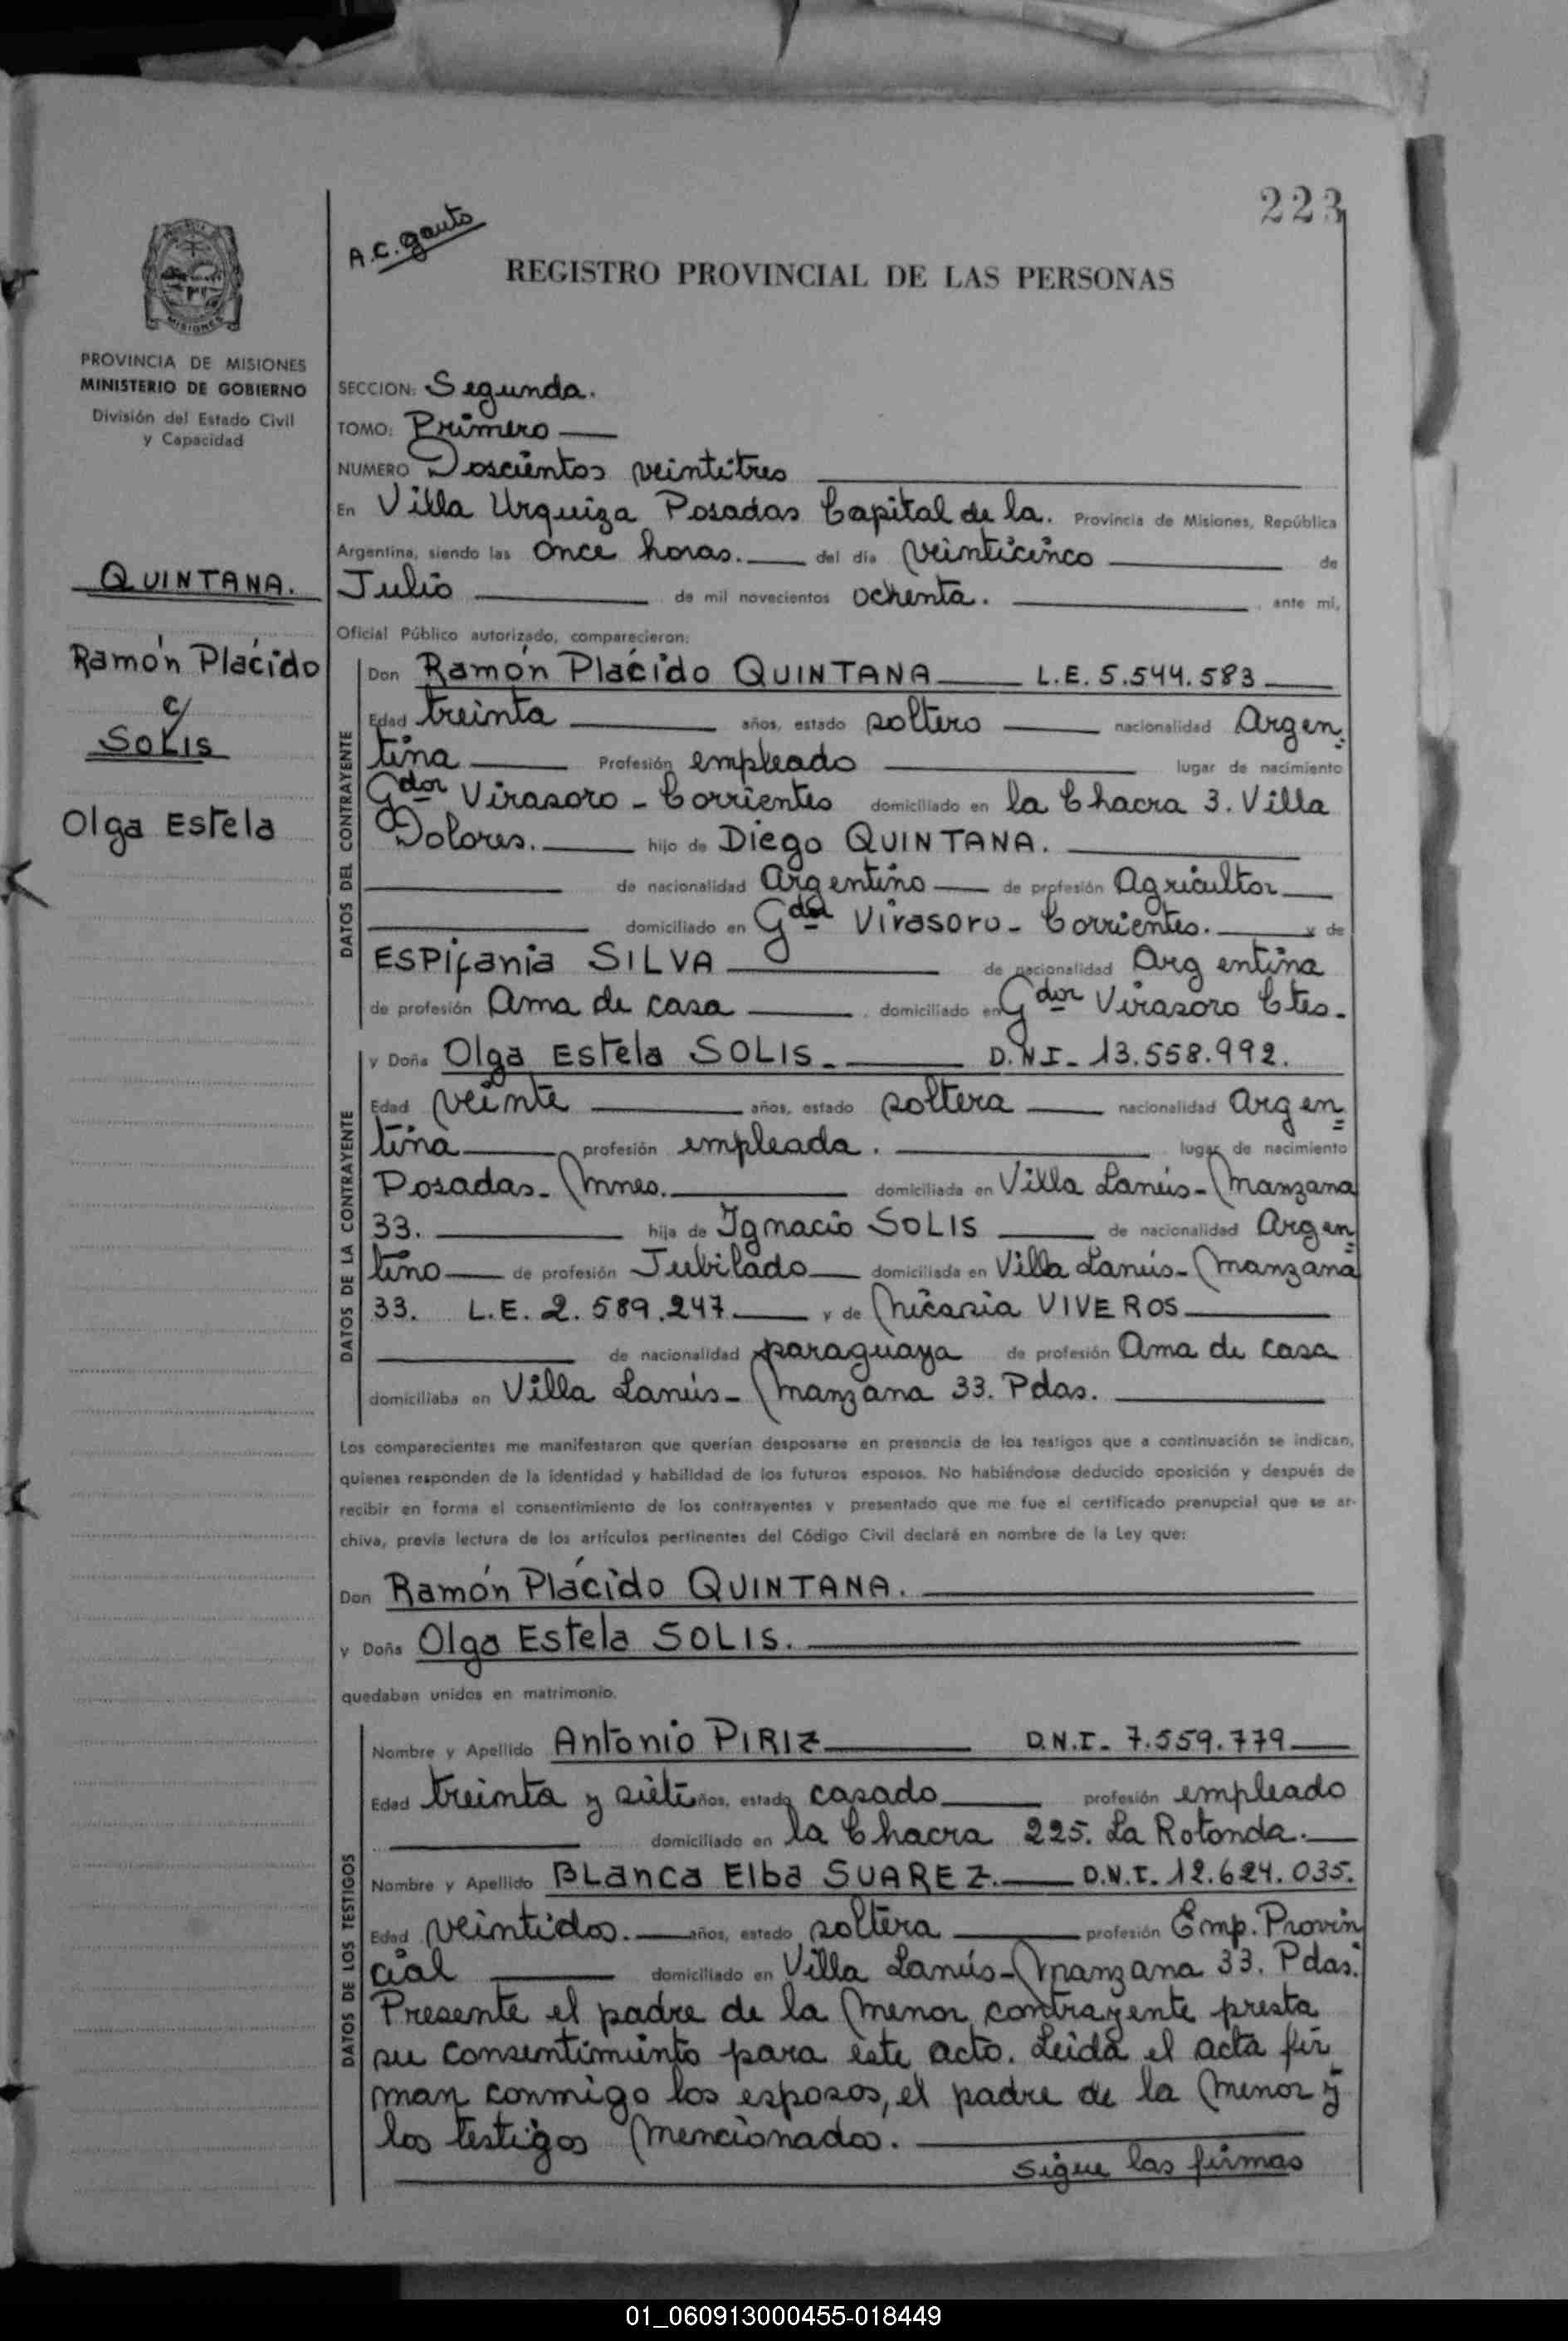 223
A.C. Gauto
REGISTRO PROVINCIAL DE LAS PERSONAS
MISIONES
PROVINCIA DE MISIONES
MINISTERIO DE GOBIERNO
División del Estado Civil
y Capacidad
QUINTANA.
Ramón Plácido
c/
SOLIS
Olga Estela
SECCION: Segunda.
TOMO: Primero
NUMERO Doscientos veintitres
En Villa Urquiza Posadas Capital de la. Provincia de Misiones, República
Argentina, siendo las once horas. del día veinticinco de
Julio de mil novecientos ochenta. ante mí,
Oficial Público autorizado, comparecieron:
DATOS DEL CONTRAYENTE
Don Ramón Plácido QUINTANA L.E. 5.544.583
Edad treinta años, estado soltero nacionalidad Argen
tina Profesión empleado lugar de nacimiento
Gdor Virasoro - Corrientes domiciliado en la Chacra 3. Villa
Dolores. hijo de Diego QUINTANA.
de nacionalidad Argentino de profesión Agricultor
domiciliado en Gdor Virasoro - Corrientes. y de
ESPifania SILVA de nacionalidad Argentina
de profesión Ama de casa domiciliado en Gdor Virasoro Ctes.
DATOS DE LA CONTRAYENTE
y Doña Olga Estela SOLIS. D.N.I. 13.558.992.
Edad veinte años, estado soltera nacionalidad Argen
tina profesión empleada. lugar de nacimiento
Posadas. Mnes. domiciliada en Villa Lanús - Manzana
33. hija de Ignacio SOLIS de nacionalidad Argen
tino de profesión Jubilado domiciliada en Villa Lanús - Manzana
33. L.E. 2.589.247 y de Nicasia VIVEROS
de nacionalidad paraguaya de profesión Ama de casa
domiciliaba en Villa Lanús - Manzana 33. Pdas.
Los comparecientes me manifestaron que querían desposarse en presencia de los testigos que a continuación se indican,
quienes responden de la identidad y habilidad de los futuros esposos. No habiéndose deducido oposición y después de
recibir en forma el consentimiento de los contrayentes y presentado que me fue el certificado prenupcial que se ar-
chiva, previa lectura de los artículos pertinentes del Código Civil declaré en nombre de la Ley que:
Don Ramón Plácido QUINTANA.
y Doña Olga Estela SOLIS.
quedaban unidos en matrimonio.
DATOS DE LOS TESTIGOS
Nombre y Apellido Antonio PIRIZ D.N.I. 7.559.779
Edad treinta y siete años, estado casado profesión empleado
domiciliado en la Chacra 225. La Rotonda.
Nombre y Apellido BLanca Elba SUAREZ. D.N.I. 12.624.035.
Edad veintidos. años, estado soltera profesión Emp. Provin
cial domiciliado en Villa Lanús - Manzana 33. Pdas.
Presente el padre de la menor contrayente presta
su consentimiento para este acto. Leida el acta fir
man conmigo los esposos, el padre de la menor y
los testigos mencionados.
sigue las firmas
01_060913000455-018449